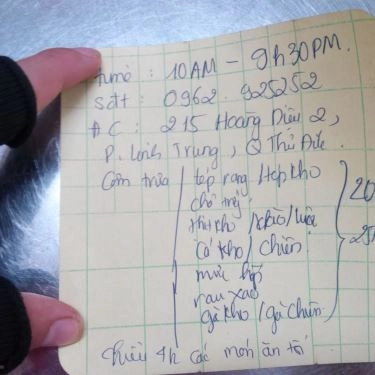 : 10AM - 9h30PM.
sđt : 0962 925252
ĐC : 215 Hoàng Diệu 2,
P. Linh Trung, Q Thủ Đức.
Cơm trưa tép rang / thịt kho
thịt kho / luộc
Cá kho / chiên
rau xào
gà kho / gà chiên
chiều 4h các món ăn tối